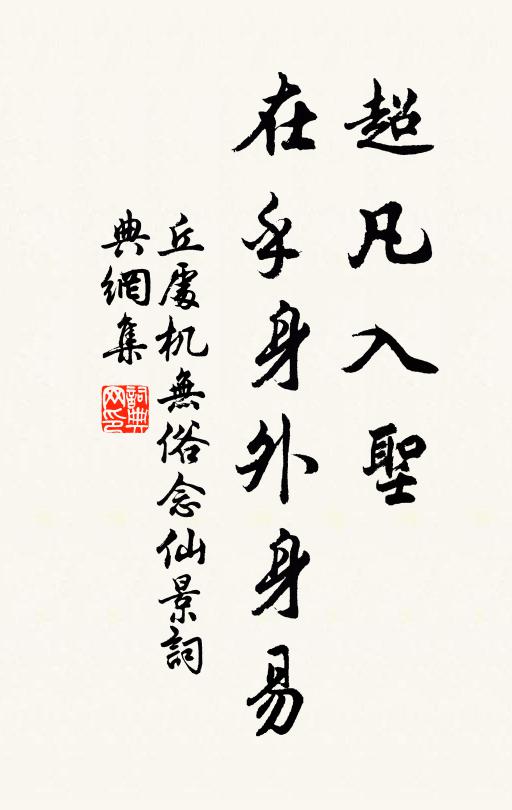 超凡入聖
在乎身外身易
丘處机無俗念仙景詞
典網集
詞典
网印